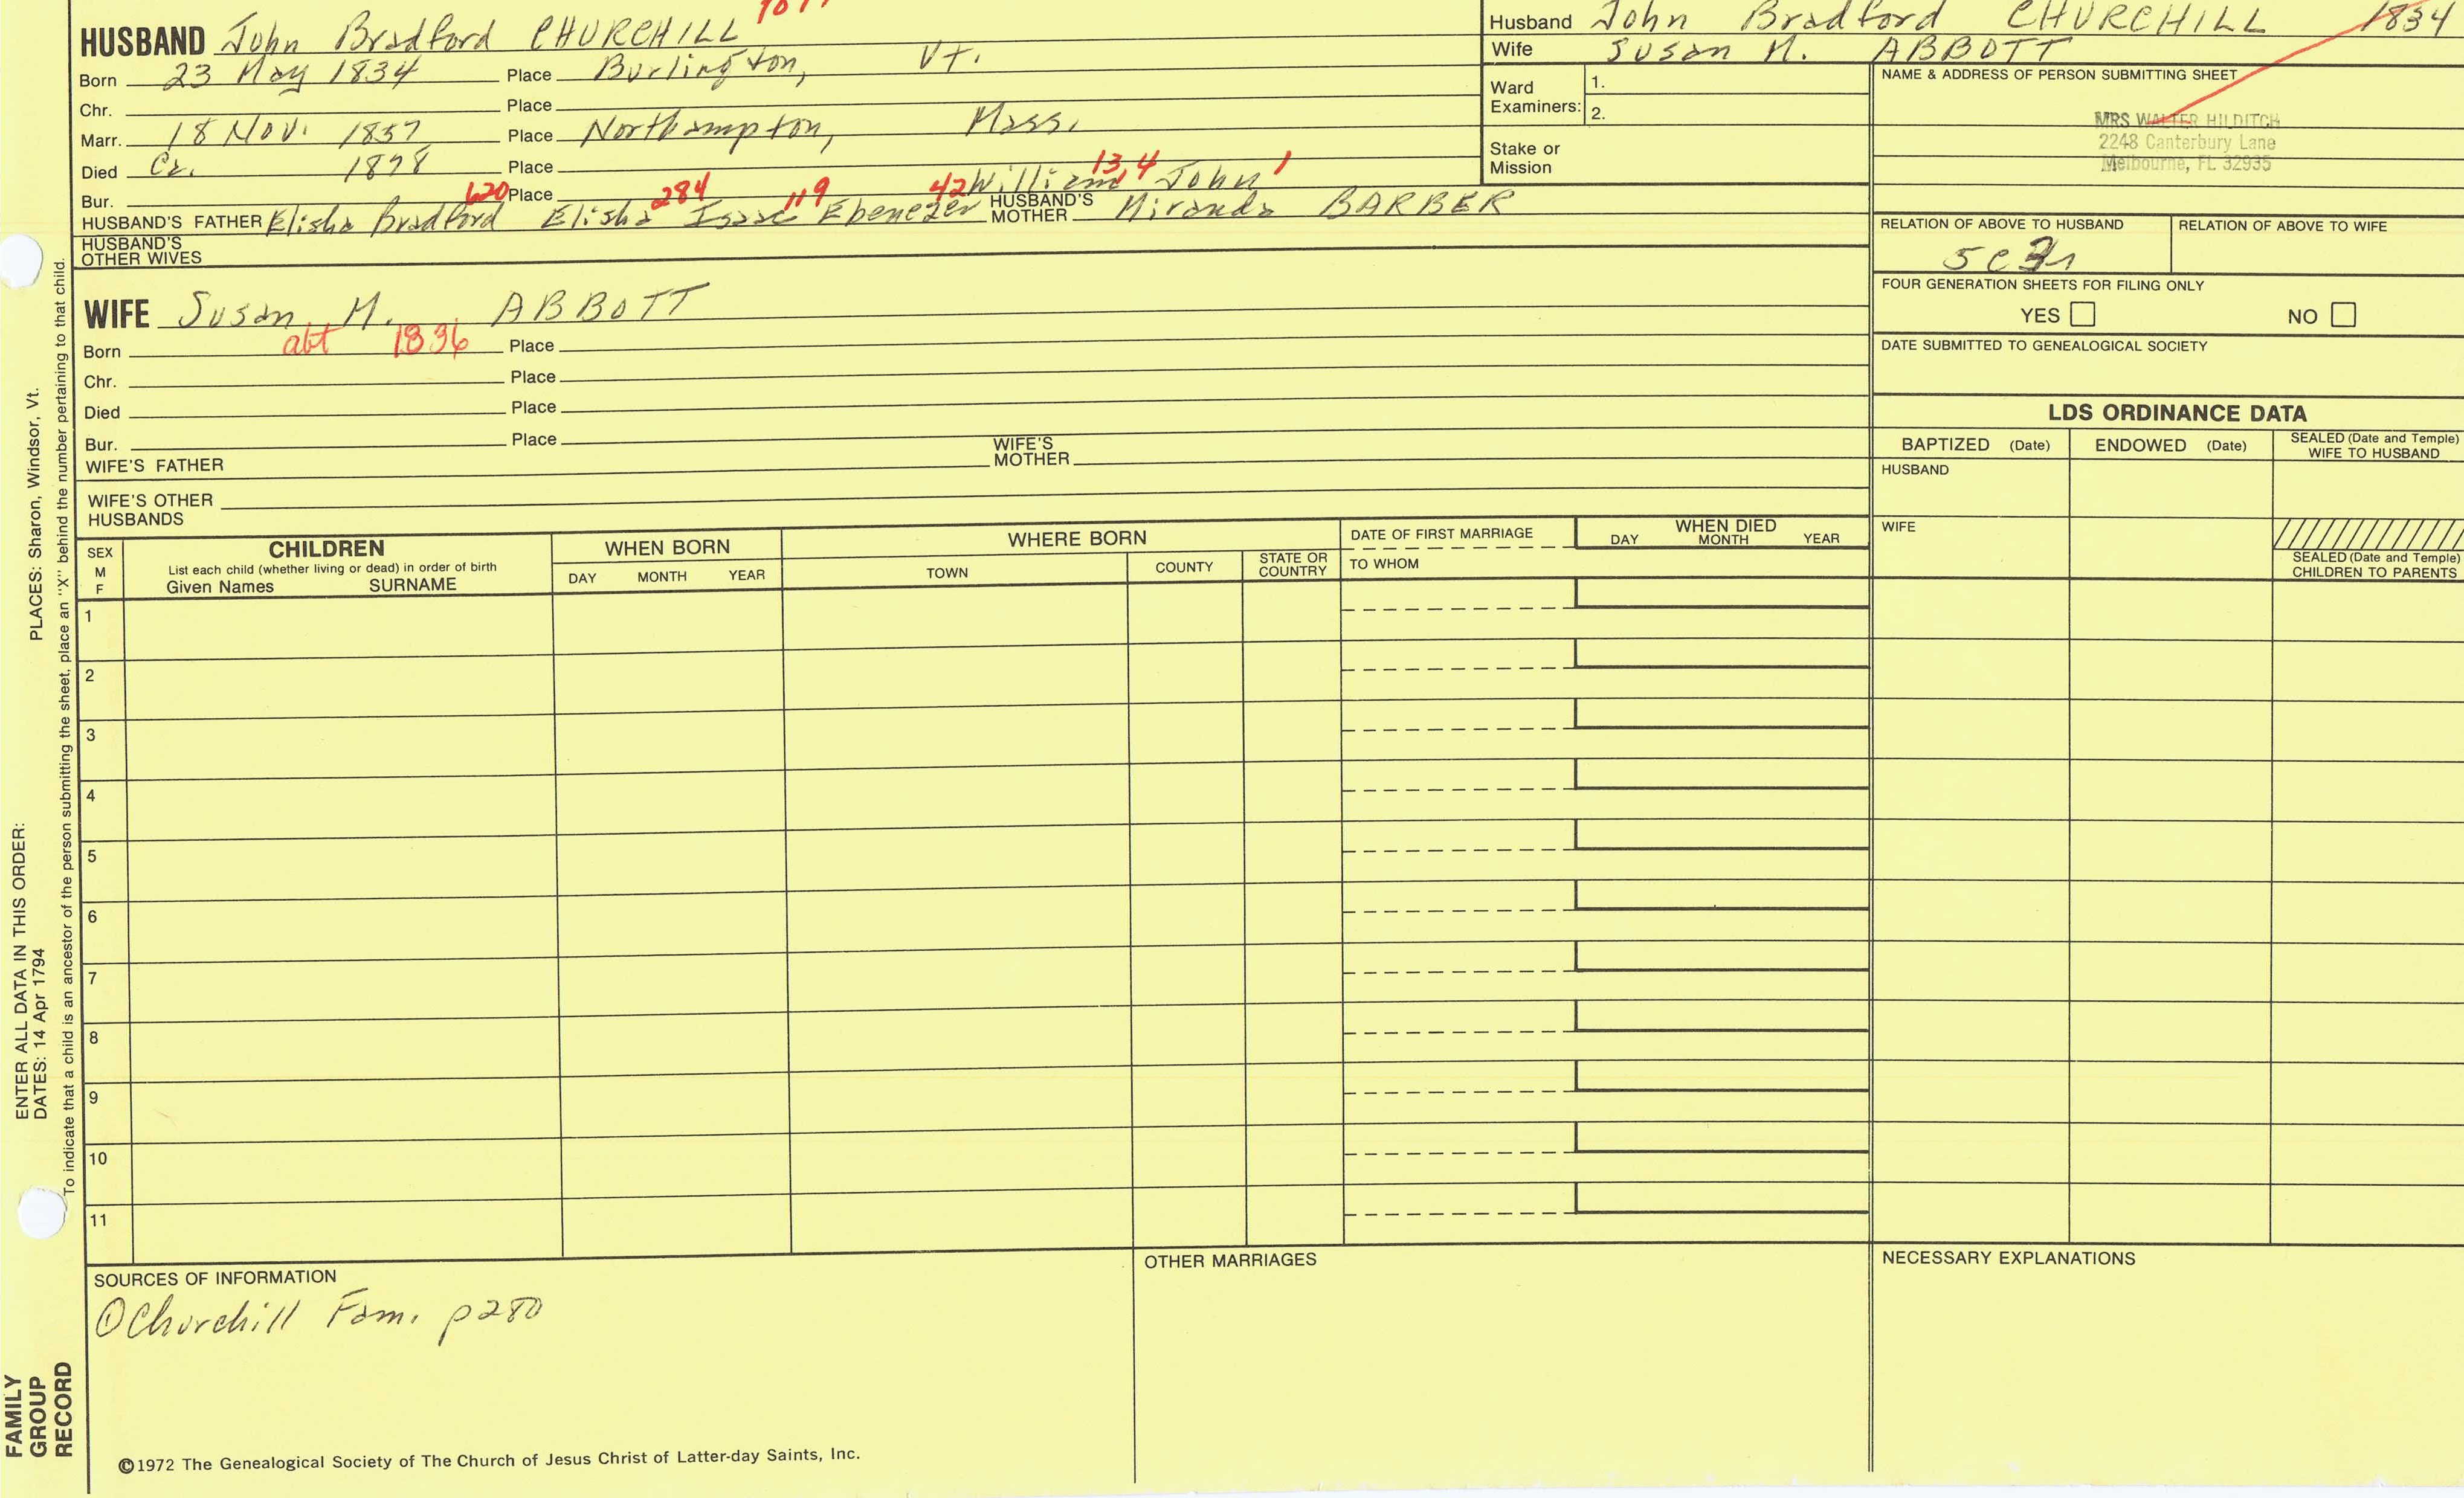 HUSBAND John Bradford CHURCHILL
Born 23 May 1834 Place Burlington, Vt.
Chr. Place
Marr. 18 Nov. 1857 Place Northampton, Mass.
Died Ca. 1898 Place
Bur. 620 Place 284 119 42 William 13,4 John 1
HUSBAND'S FATHER Elisha Bradford Elisha Isaac Ebenezer HUSBAND'S MOTHER Miranda BARBER
HUSBAND'S OTHER WIVES
Husband John Bradford CHURCHILL 1834
Wife Susan M. ABBOTT
Ward Examiners: 1.
2.
Stake or Mission
NAME & ADDRESS OF PERSON SUBMITTING SHEET
MRS WALTER HILDITCH
2248 Canterbury Lane
Melbourne, FL 32935
RELATION OF ABOVE TO HUSBAND RELATION OF ABOVE TO WIFE
FOUR GENERATION SHEETS FOR FILING ONLY
YES NO
DATE SUBMITTED TO GENEALOGICAL SOCIETY
WIFE Susan M. ABBOTT
Born abt 1836 Place
Chr. Place
Died Place
Bur. Place
WIFE'S FATHER WIFE'S MOTHER
WIFE'S OTHER HUSBANDS
LDS ORDINANCE DATA
BAPTIZED (Date) ENDOWED (Date) SEALED (Date and Temple) WIFE TO HUSBAND
HUSBAND
WIFE
SEALED (Date and Temple) CHILDREN TO PARENTS
SEX M F
CHILDREN
List each child (whether living or dead) in order of birth
Given Names SURNAME
WHEN BORN
DAY MONTH YEAR
WHERE BORN
TOWN COUNTY STATE OR COUNTRY
DATE OF FIRST MARRIAGE
TO WHOM
WHEN DIED
DAY MONTH YEAR
1
2
3
4
5
6
7
8
9
10
11
SOURCES OF INFORMATION
①Churchill Fam. p280
OTHER MARRIAGES
NECESSARY EXPLANATIONS
©1972 The Genealogical Society of The Church of Jesus Christ of Latter-day Saints, Inc.
FAMILY GROUP RECORD
ENTER ALL DATA IN THIS ORDER:
DATES: 14 Apr 1794 PLACES: Sharon, Windsor, Vt.
To indicate that a child is an ancestor of the person submitting the sheet, place an "X" behind the number pertaining to that child.